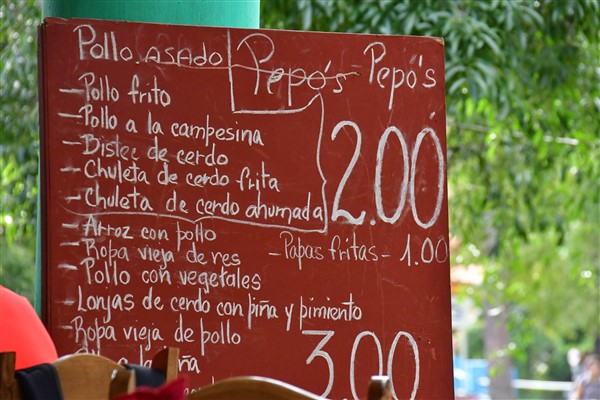 Pollo asado Pepó's Pepó's
- Pollo frito
- Pollo a la campesina
- Bistec de cerdo
- Chuleta de cerdo frita
- Chuleta de cerdo ahumada
2.00
- Arroz con pollo
- Ropa vieja de res
- Papas fritas - 1.00
- Pollo con vegetales
- Lonjas de cerdo con piña y pimiento
- Ropa vieja de pollo
3.00
a la